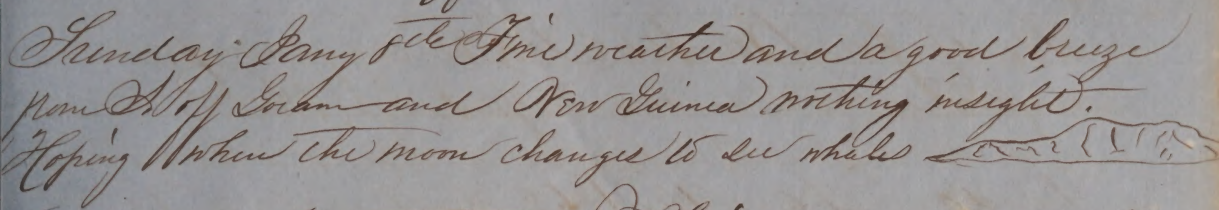 Sunday Jany 8th Fine weather and a good breeze
from S off Goram and New Guinea nothing insight.
Hoping when the moon changes to see whales